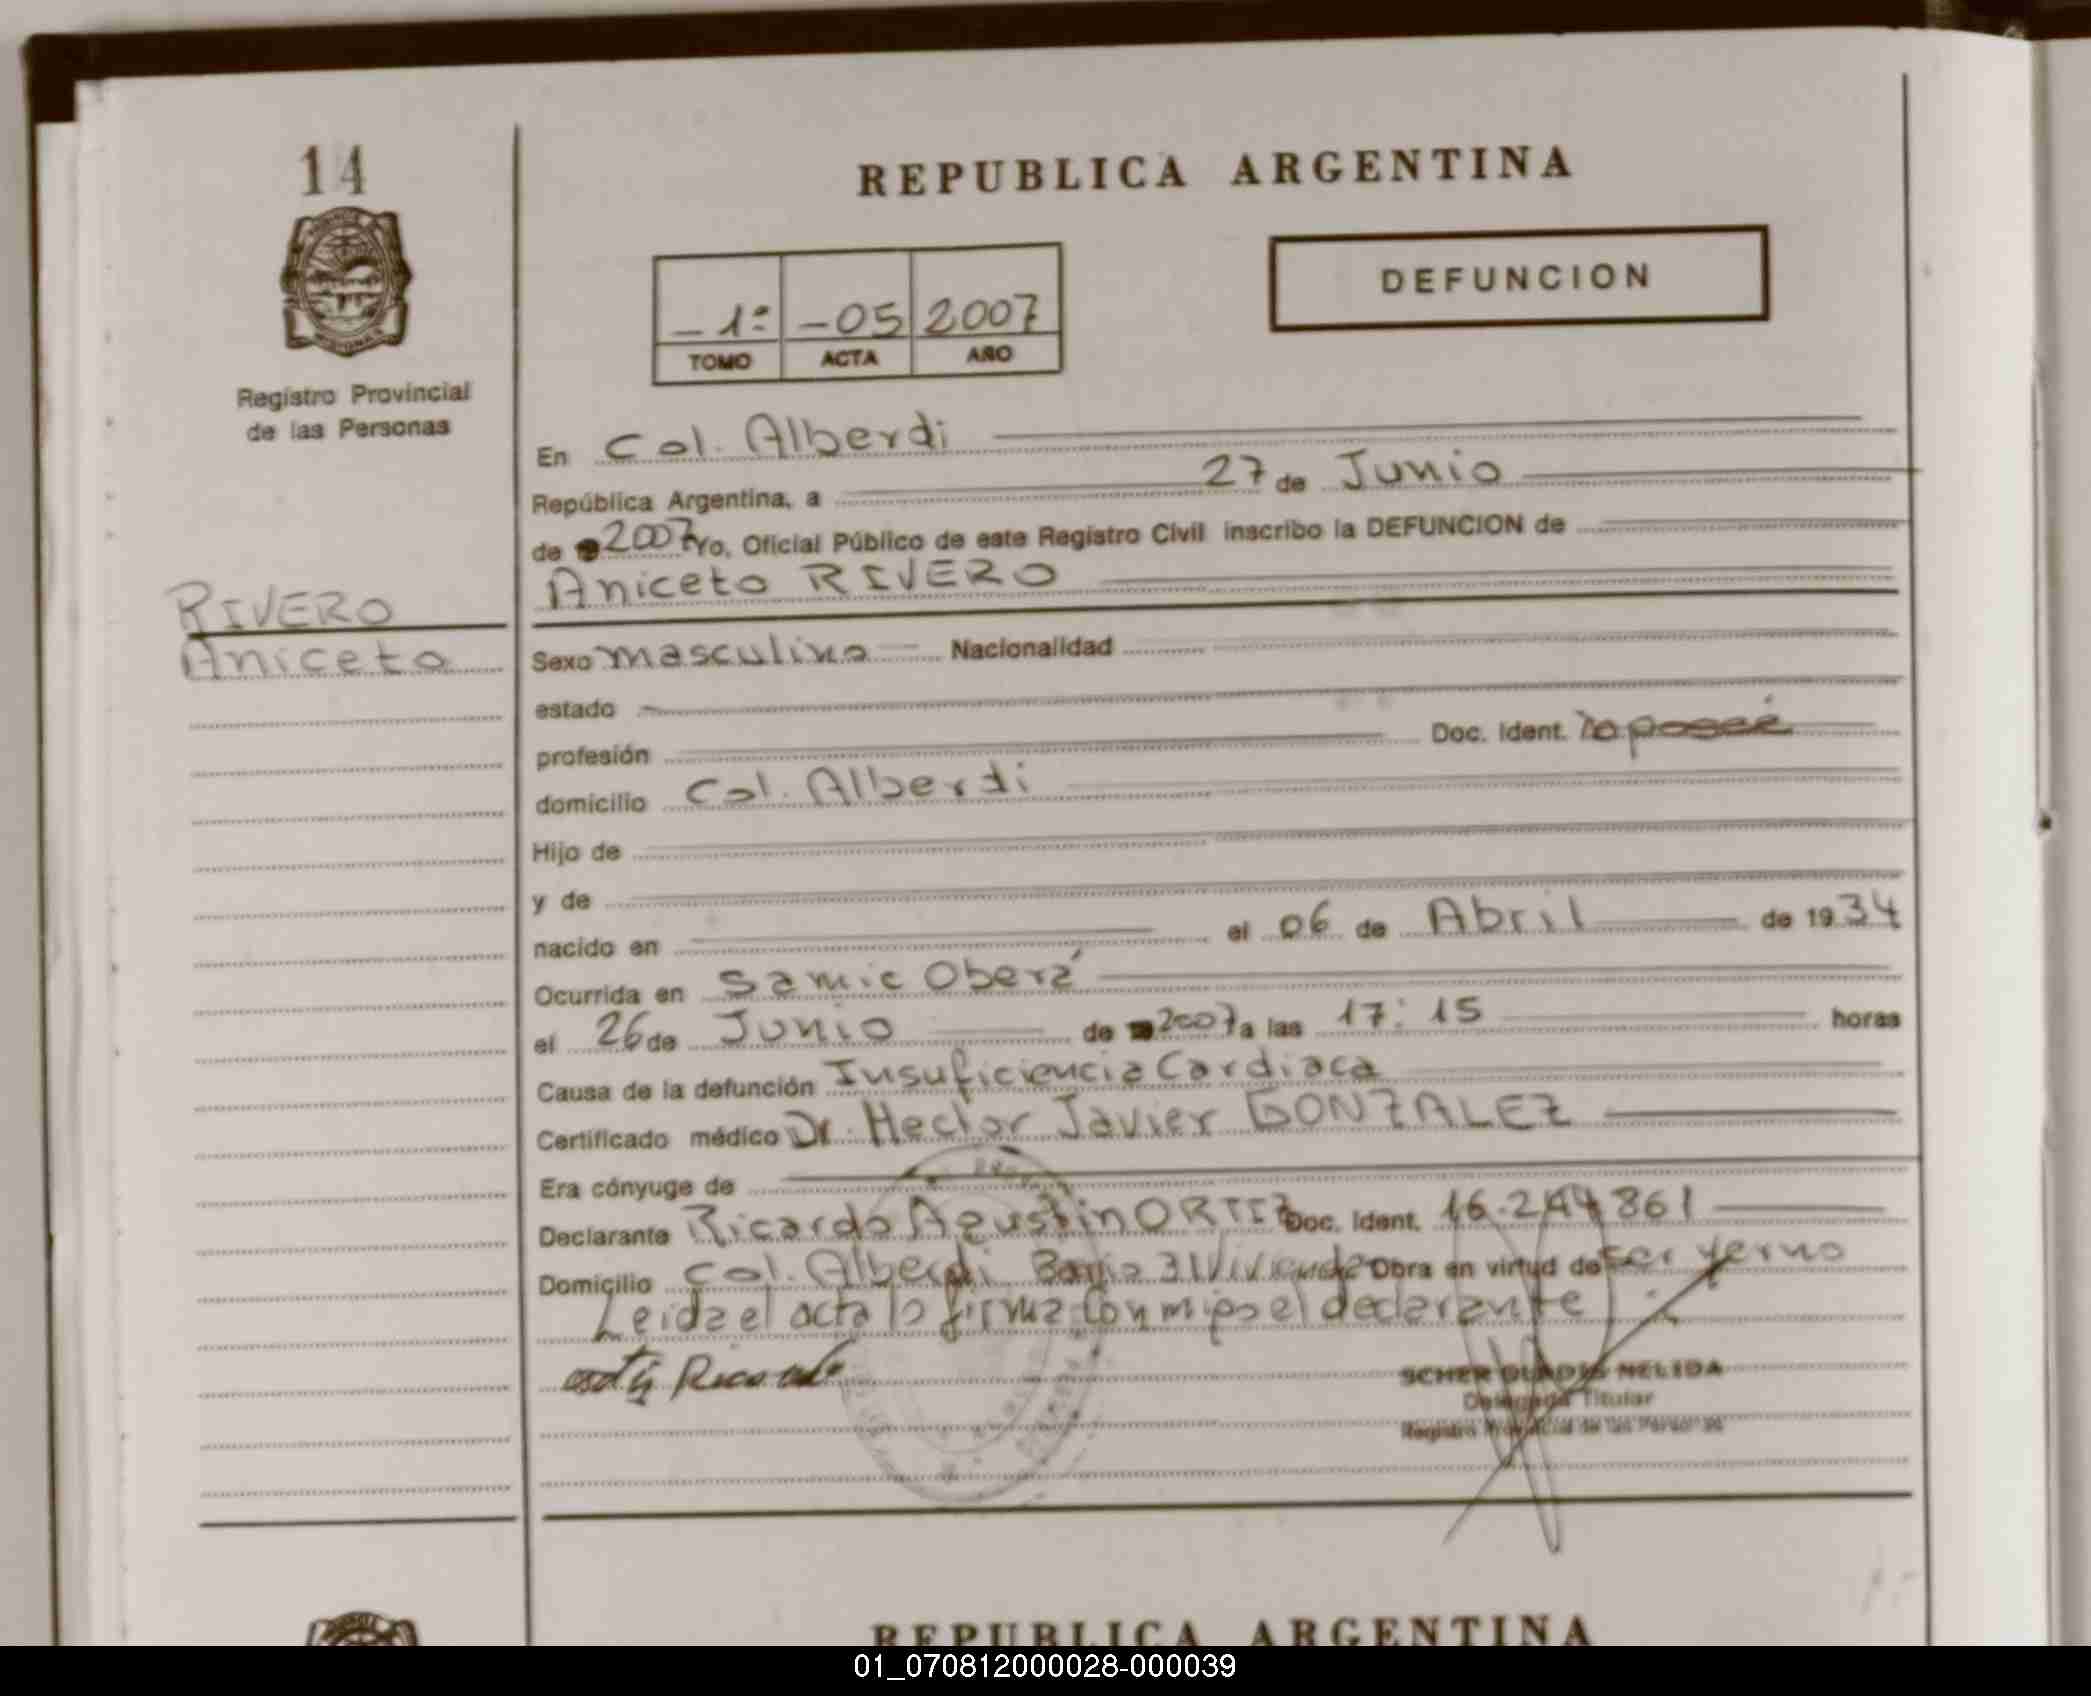 14
REPUBLICA ARGENTINA
DEFUNCION
1º -05 2007
TOMO ACTA AÑO
Registro Provincial
de las Personas
En Col. Alberdi
República Argentina, a 27 de Junio
de 2007 Yo, Oficial Público de este Registro Civil inscribo la DEFUNCION de
Aniceto RIVERO
RIVERO
Aniceto
Sexo masculino Nacionalidad
estado
profesión Doc. Ident. no poseé
domicilio Col. Alberdi
Hijo de
y de
nacido en el 06 de Abril de 1934
Ocurrida en Samic Oberá
el 26 de Junio de 2007 a las 17:15 horas
Causa de la defunción Insuficiencia Cardiaca
Certificado médico Dr. Hector Javier GONZALEZ
Era cónyuge de
Declarante Ricardo Agustin ORTIZ Doc. Ident. 16.244861
Domicilio Col. Alberdi Barrio 31 Vivienda Obra en virtud de ser yerno
Leida el acta la firma Con migo el declarante
Ricardo
SCHER GLADIS NELIDA
Delegada Titular
Registro Provincial de las Personas
REPUBLICA ARGENTINA
01_070812000028-000039